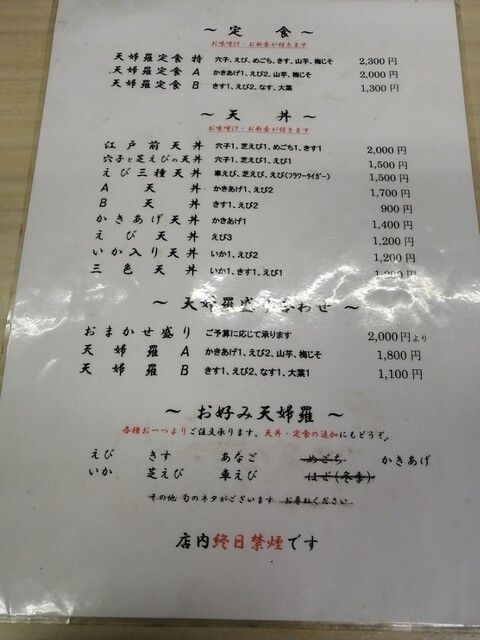 ～ 定 食 ～
お味噌汁・お新香が付きます
天婦羅定食 特 穴子、えび、めごち、きす、山芋、梅じそ 2,300円
天婦羅定食 A かきあげ1、えび2、山芋、梅じそ 2,000円
天婦羅定食 B きす1、えび2、なす、大葉 1,300円
～ 天 丼 ～
お味噌汁・お新香が付きます
江戸前天丼 穴子1、芝えび1、めごち1、きす1 2,000円
穴子と芝えびの天丼 穴子1、芝えび1、えび1 1,500円
えび三種天丼 車えび、芝えび、えび(フラワータイガー) 1,500円
A 天 丼 かきあげ1、えび2 1,700円
B 天 丼 きす1、えび2 900円
かきあげ天丼 かきあげ1 1,400円
えび天丼 えび3 1,200円
いか入り天丼 いか1、えび2 1,200円
三色天丼 いか1、きす1、えび1 円
～ 天婦羅盛り合わせ ～
おまかせ盛り ご予算に応じて承ります 2,000円より
天婦羅 A かきあげ1、えび2、山芋、梅じそ 1,800円
天婦羅 B きす1、えび2、なす1、大葉1 1,100円
～ お好み天婦羅 ～
各種お一つよりご注文承ります。天丼・定食の追加にもどうぞ。
えび きす あなご めごち かきあげ
いか 芝えび 車えび はぜ(冬季)
その他 旬のネタがございます お尋ねください
店内終日禁煙です